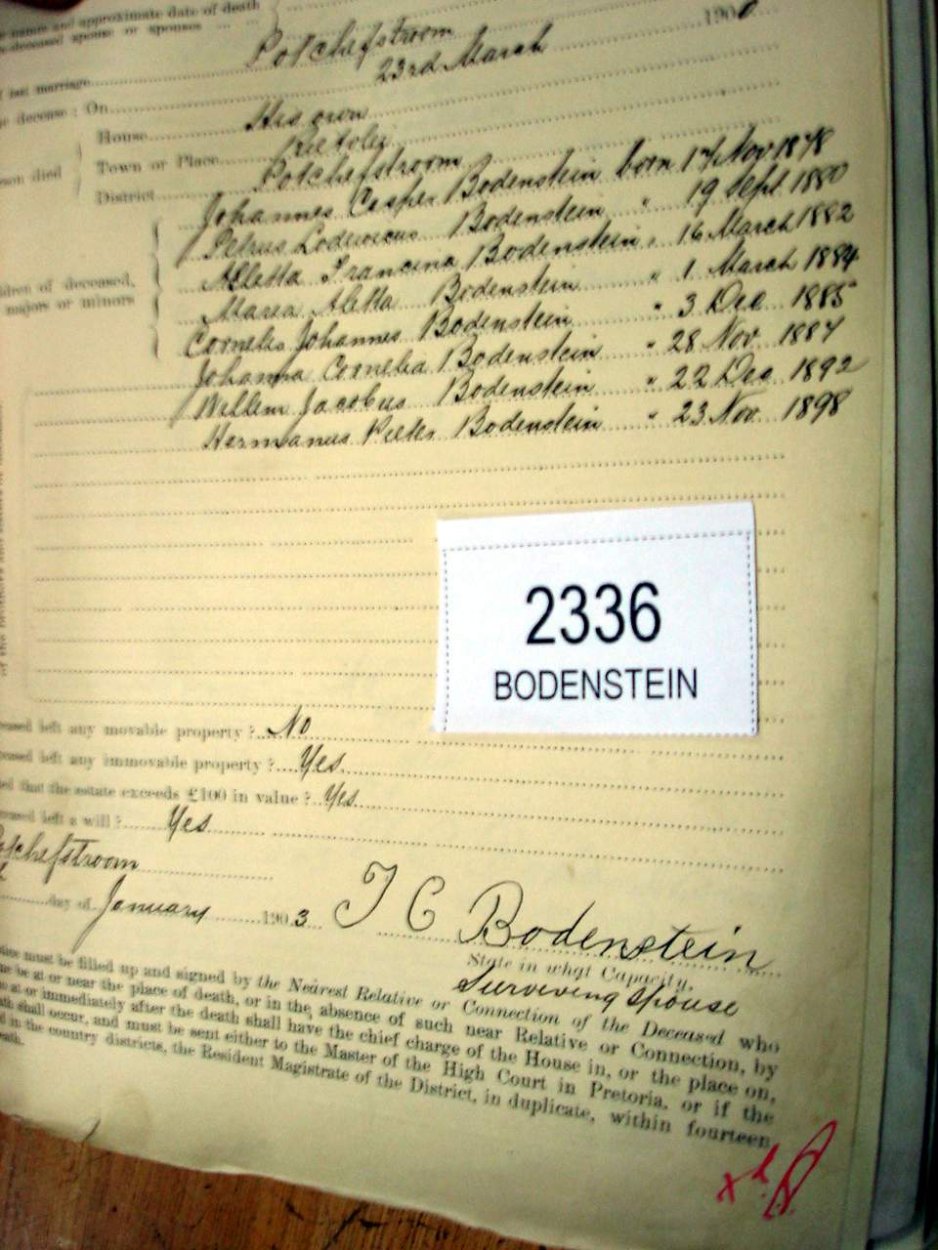 name and approximate date of death
deceased spouse or spouses
Potchefstroom
last marriage
decease : On 23rd March 1900
House His own
Town or Place
District Potchefstroom
Johannes Casper Bodenstein born 17 Nov 1878
Petrus Lodewicus Bodenstein " 19 Sept 1880
Alletta Francina Bodenstein " 16 March 1882
Maria Aletta Bodenstein " 1 March 1884
Cornelis Johannes Bodenstein " 3 Dec 1885
Johanna Cornelia Bodenstein " 28 Nov. 1887
Willem Jacobus Bodenstein " 22 Dec 1892
Hermanus Pieter Bodenstein " 23 Nov. 1898
of deceased,
majors or minors
2336
BODENSTEIN
left any movable property ? No
left any immovable property ? Yes
that the estate exceeds £100 in value ? Yes
left a will ? Yes
Potchefstroom
day of January 1903
J C Bodenstein
State in what Capacity.
Surviving Spouse
must be filled up and signed by the Nearest Relative or Connection of the Deceased who
be at or near the place of death, or in the absence of such near Relative or Connection, by
at or immediately after the death shall have the chief charge of the House in, or the place on,
shall occur, and must be sent either to the Master of the High Court in Pretoria, or if the
in the country districts, the Resident Magistrate of the District, in duplicate, within fourteen